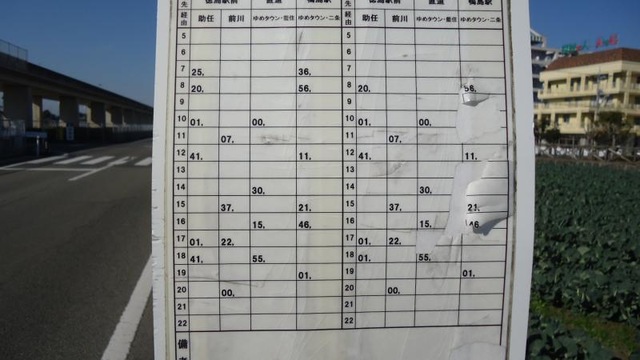 先 徳島駅前 直通 鴨島駅 先 徳島駅前 直通 鴨島駅
経由 助任 前川 ゆめタウン・藍住 ゆめタウン・二条 経由 助任 前川 ゆめタウン・藍住 ゆめタウン・二条
5 5
6 6
7 25. 36. 7
8 20. 56. 8 20. 56.
9 9
10 01. 00. 10 01. 00.
11 07. 11 07.
12 41. 11. 12 41. 11.
13 13
14 30. 14 30.
15 37. 21. 15 37. 21.
16 15. 46. 16 15. 46
17 01. 22. 17 01. 22.
18 41. 55. 18 01. 55.
19 01. 19 01.
20 00. 20 00.
21 21
22 22
備